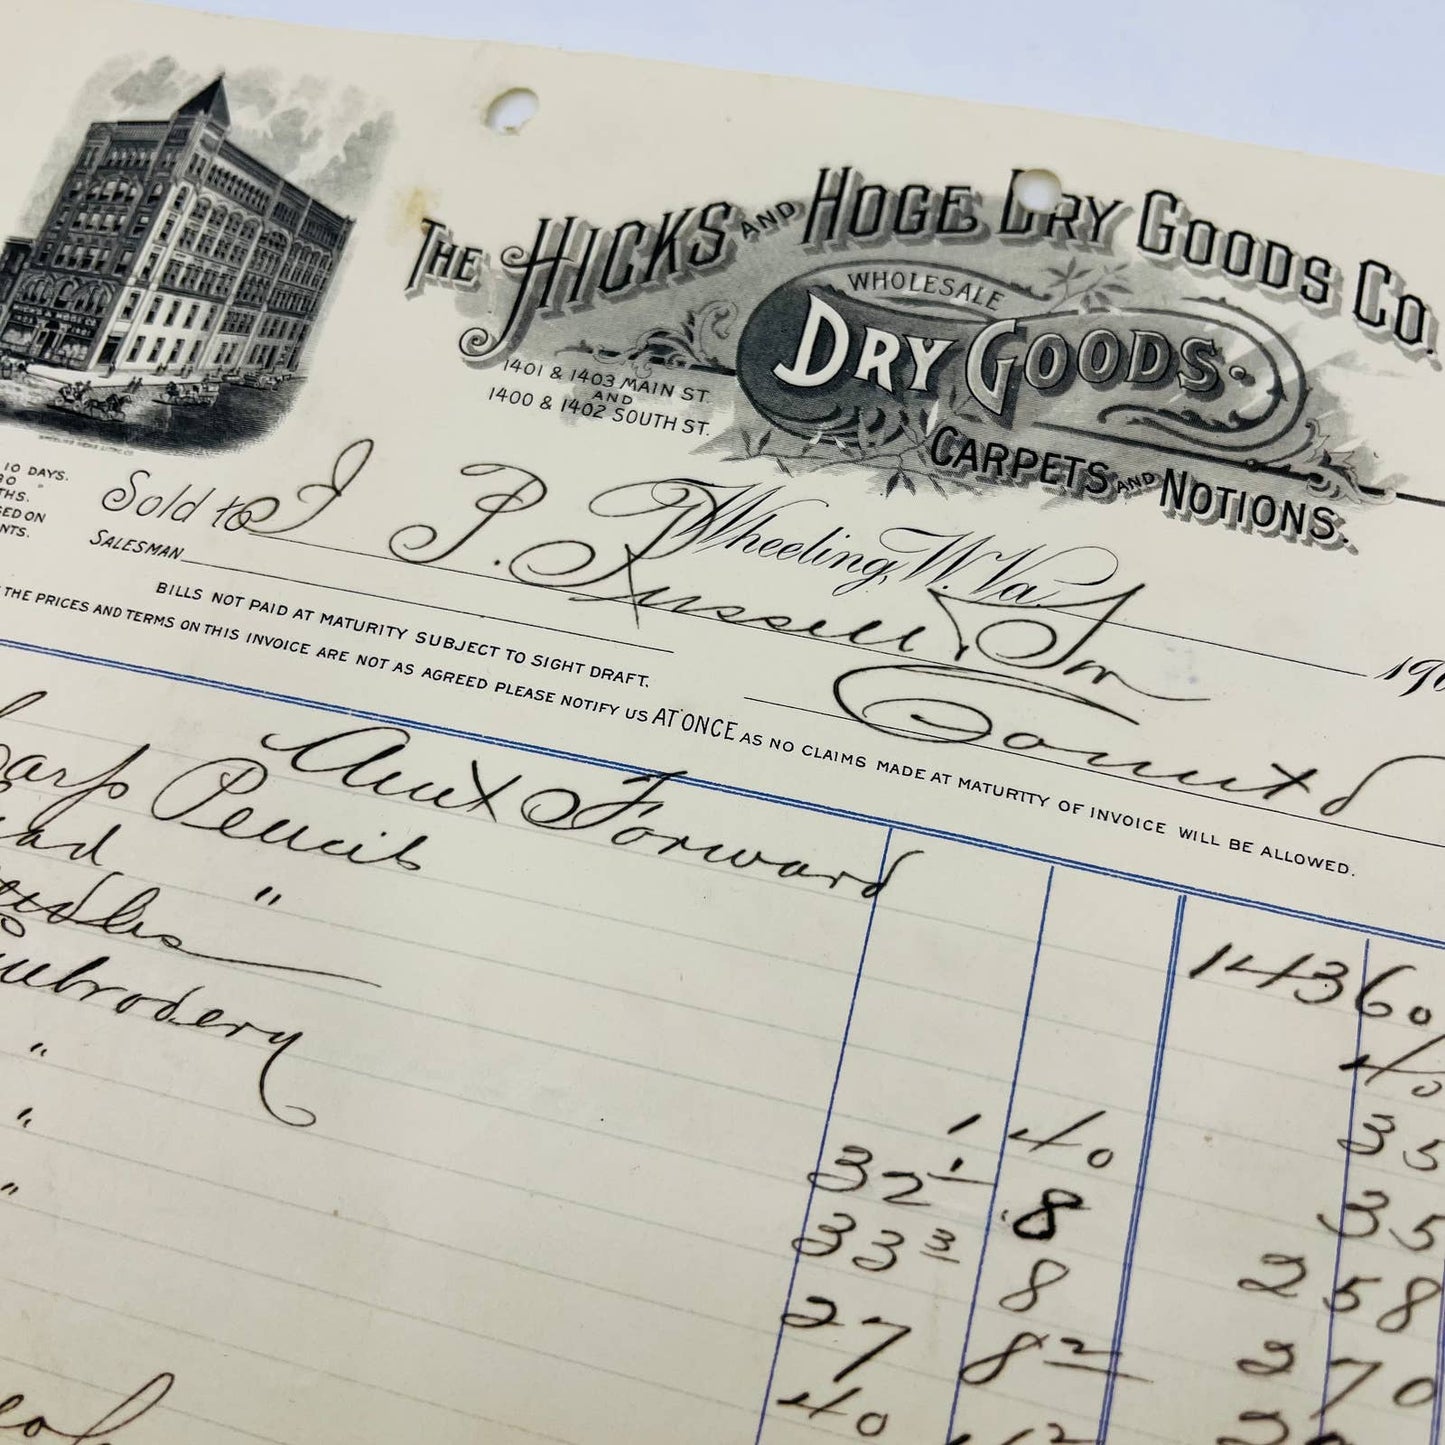 THE HICKS AND HOGE DRY GOODS CO.
WHOLESALE
DRY GOODS
CARPETS AND NOTIONS.
1401 & 1403 MAIN ST.
AND
1400 & 1402 SOUTH ST.
10 DAYS.
Wheeling, W. Va.
190
Sold to J P. Russell, Sr
SALESMAN
Contd
BILLS NOT PAID AT MATURITY SUBJECT TO SIGHT DRAFT.
THE PRICES AND TERMS ON THIS INVOICE ARE NOT AS AGREED PLEASE NOTIFY US AT ONCE AS NO CLAIMS MADE AT MATURITY OF INVOICE WILL BE ALLOWED.
Amt Forward 14360
Pencils 40
" 1 40 35
32 1 8 35
Embrodery 33 3 8 258
" 27 8 2 270
" 40 12
"